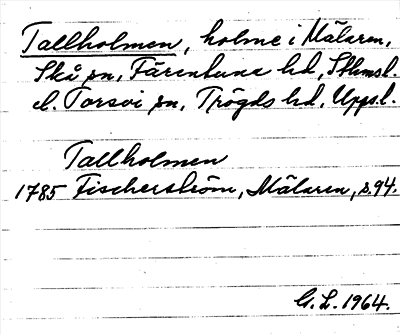 Tallholmen, holme i Mälaren,
Skå sn, Färentuna hd, Sthmsl.
el. Torsvi sn, Trögds hd, Uppsl.
Tallholmen
1785 Fischerström, Mälaren, s. 94.
G. L. 1964.